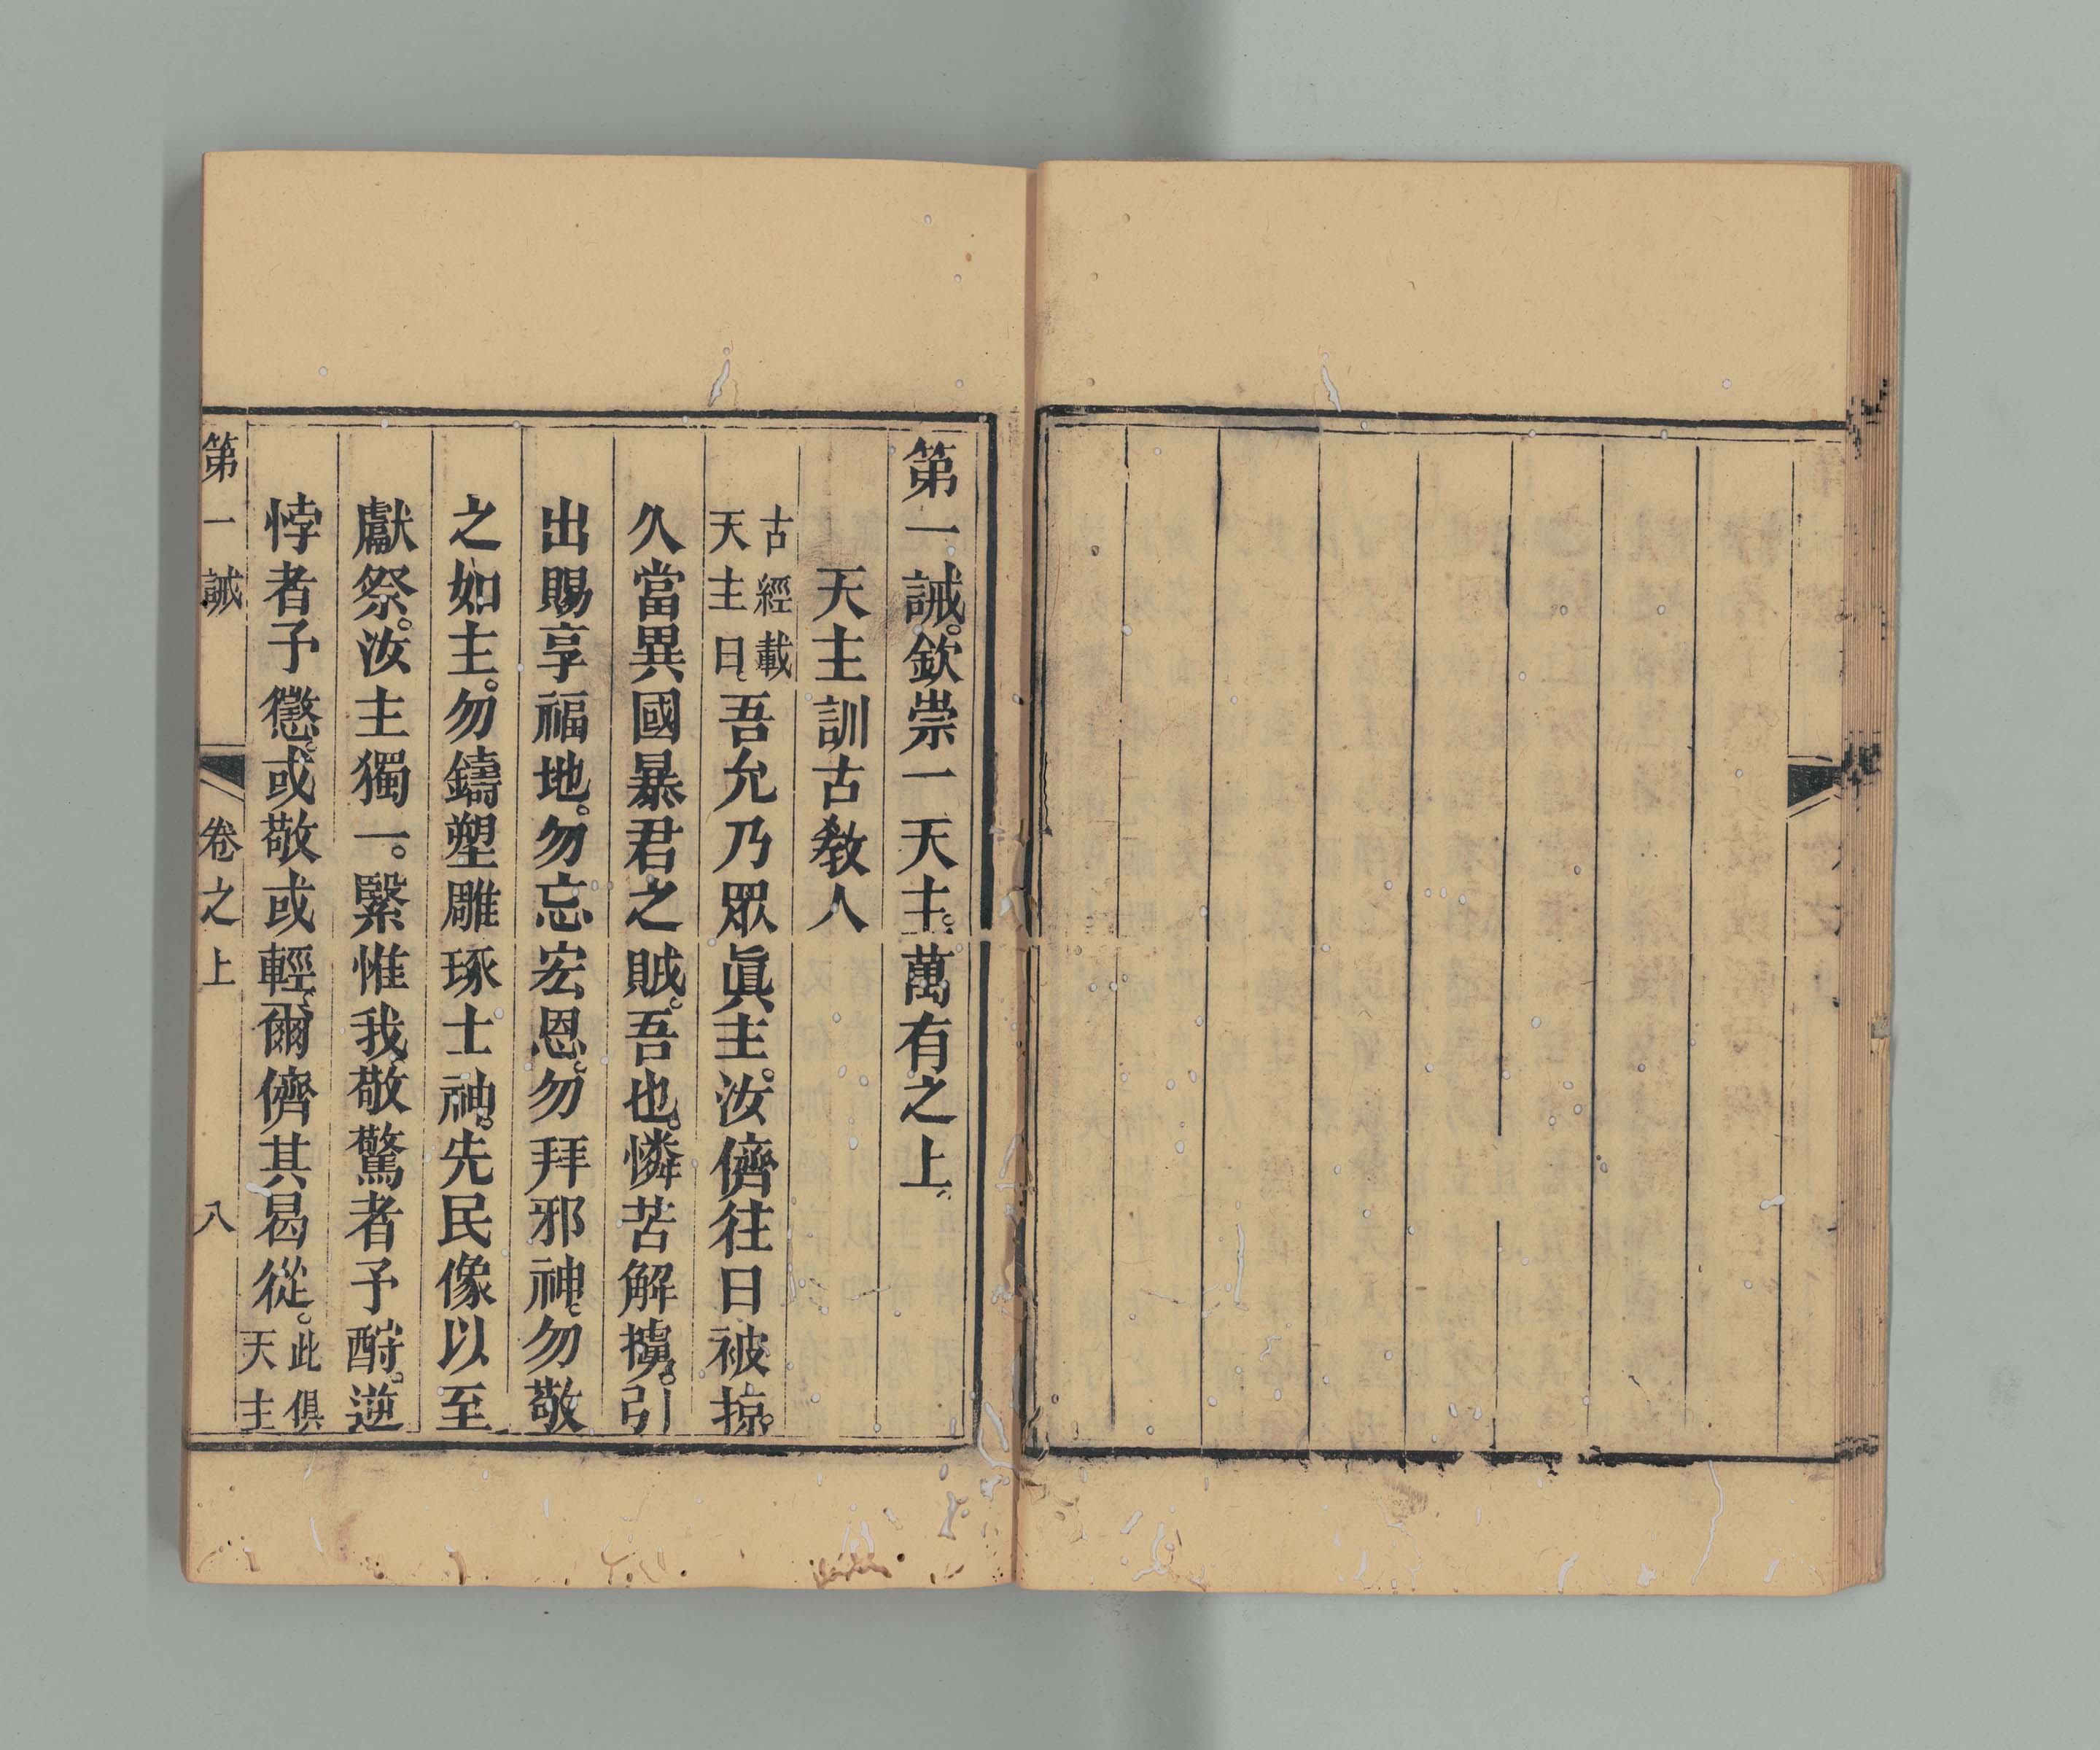 第一誡。欽崇一天主。萬有之上。
天主訓古教人
古經載
天主曰、
吾允乃眾眞主。汝儕往日被掠。
久當異國暴君之賊。吾也。憐苦解擄。引
出賜享福地。勿忘宏恩。勿拜邪神。勿敬
之如主。勿鑄塑雕琢士神。先民像以至
獻祭。汝主獨一。緊惟我、敬驚者予酧。逆
悖者予懲。或敬或輕、爾儕其曷從。
此俱
天主
第一誡
卷之上
八